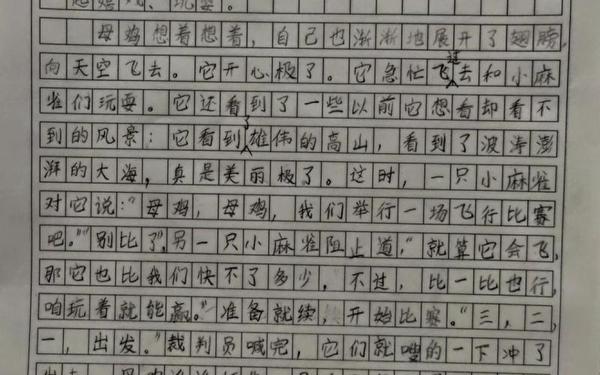 起嬉戏、玩耍。
母鸡想着想着,自己也渐渐地展开了翅膀,
向天空飞去。它开心极了。它急忙飞过去和小麻
雀们玩耍。它还看到了一些以前它想看却看不
到的风景:它看到了雄伟的高山,看到了波涛澎
湃的大海,真是美丽极了。这时,一只小麻雀
对它说:“母鸡,母鸡,我们举行一场飞行比赛
吧。”“别比了”,另一只小麻雀阻止道,“就算它会飞,
那它也比我们快不了多少,不过,比一比也行,
咱玩着就能赢。”准备就续,开始比赛。“三,二,
一,出发。”裁判员喊完,它们就嗖的一下冲了
出去,母鸡